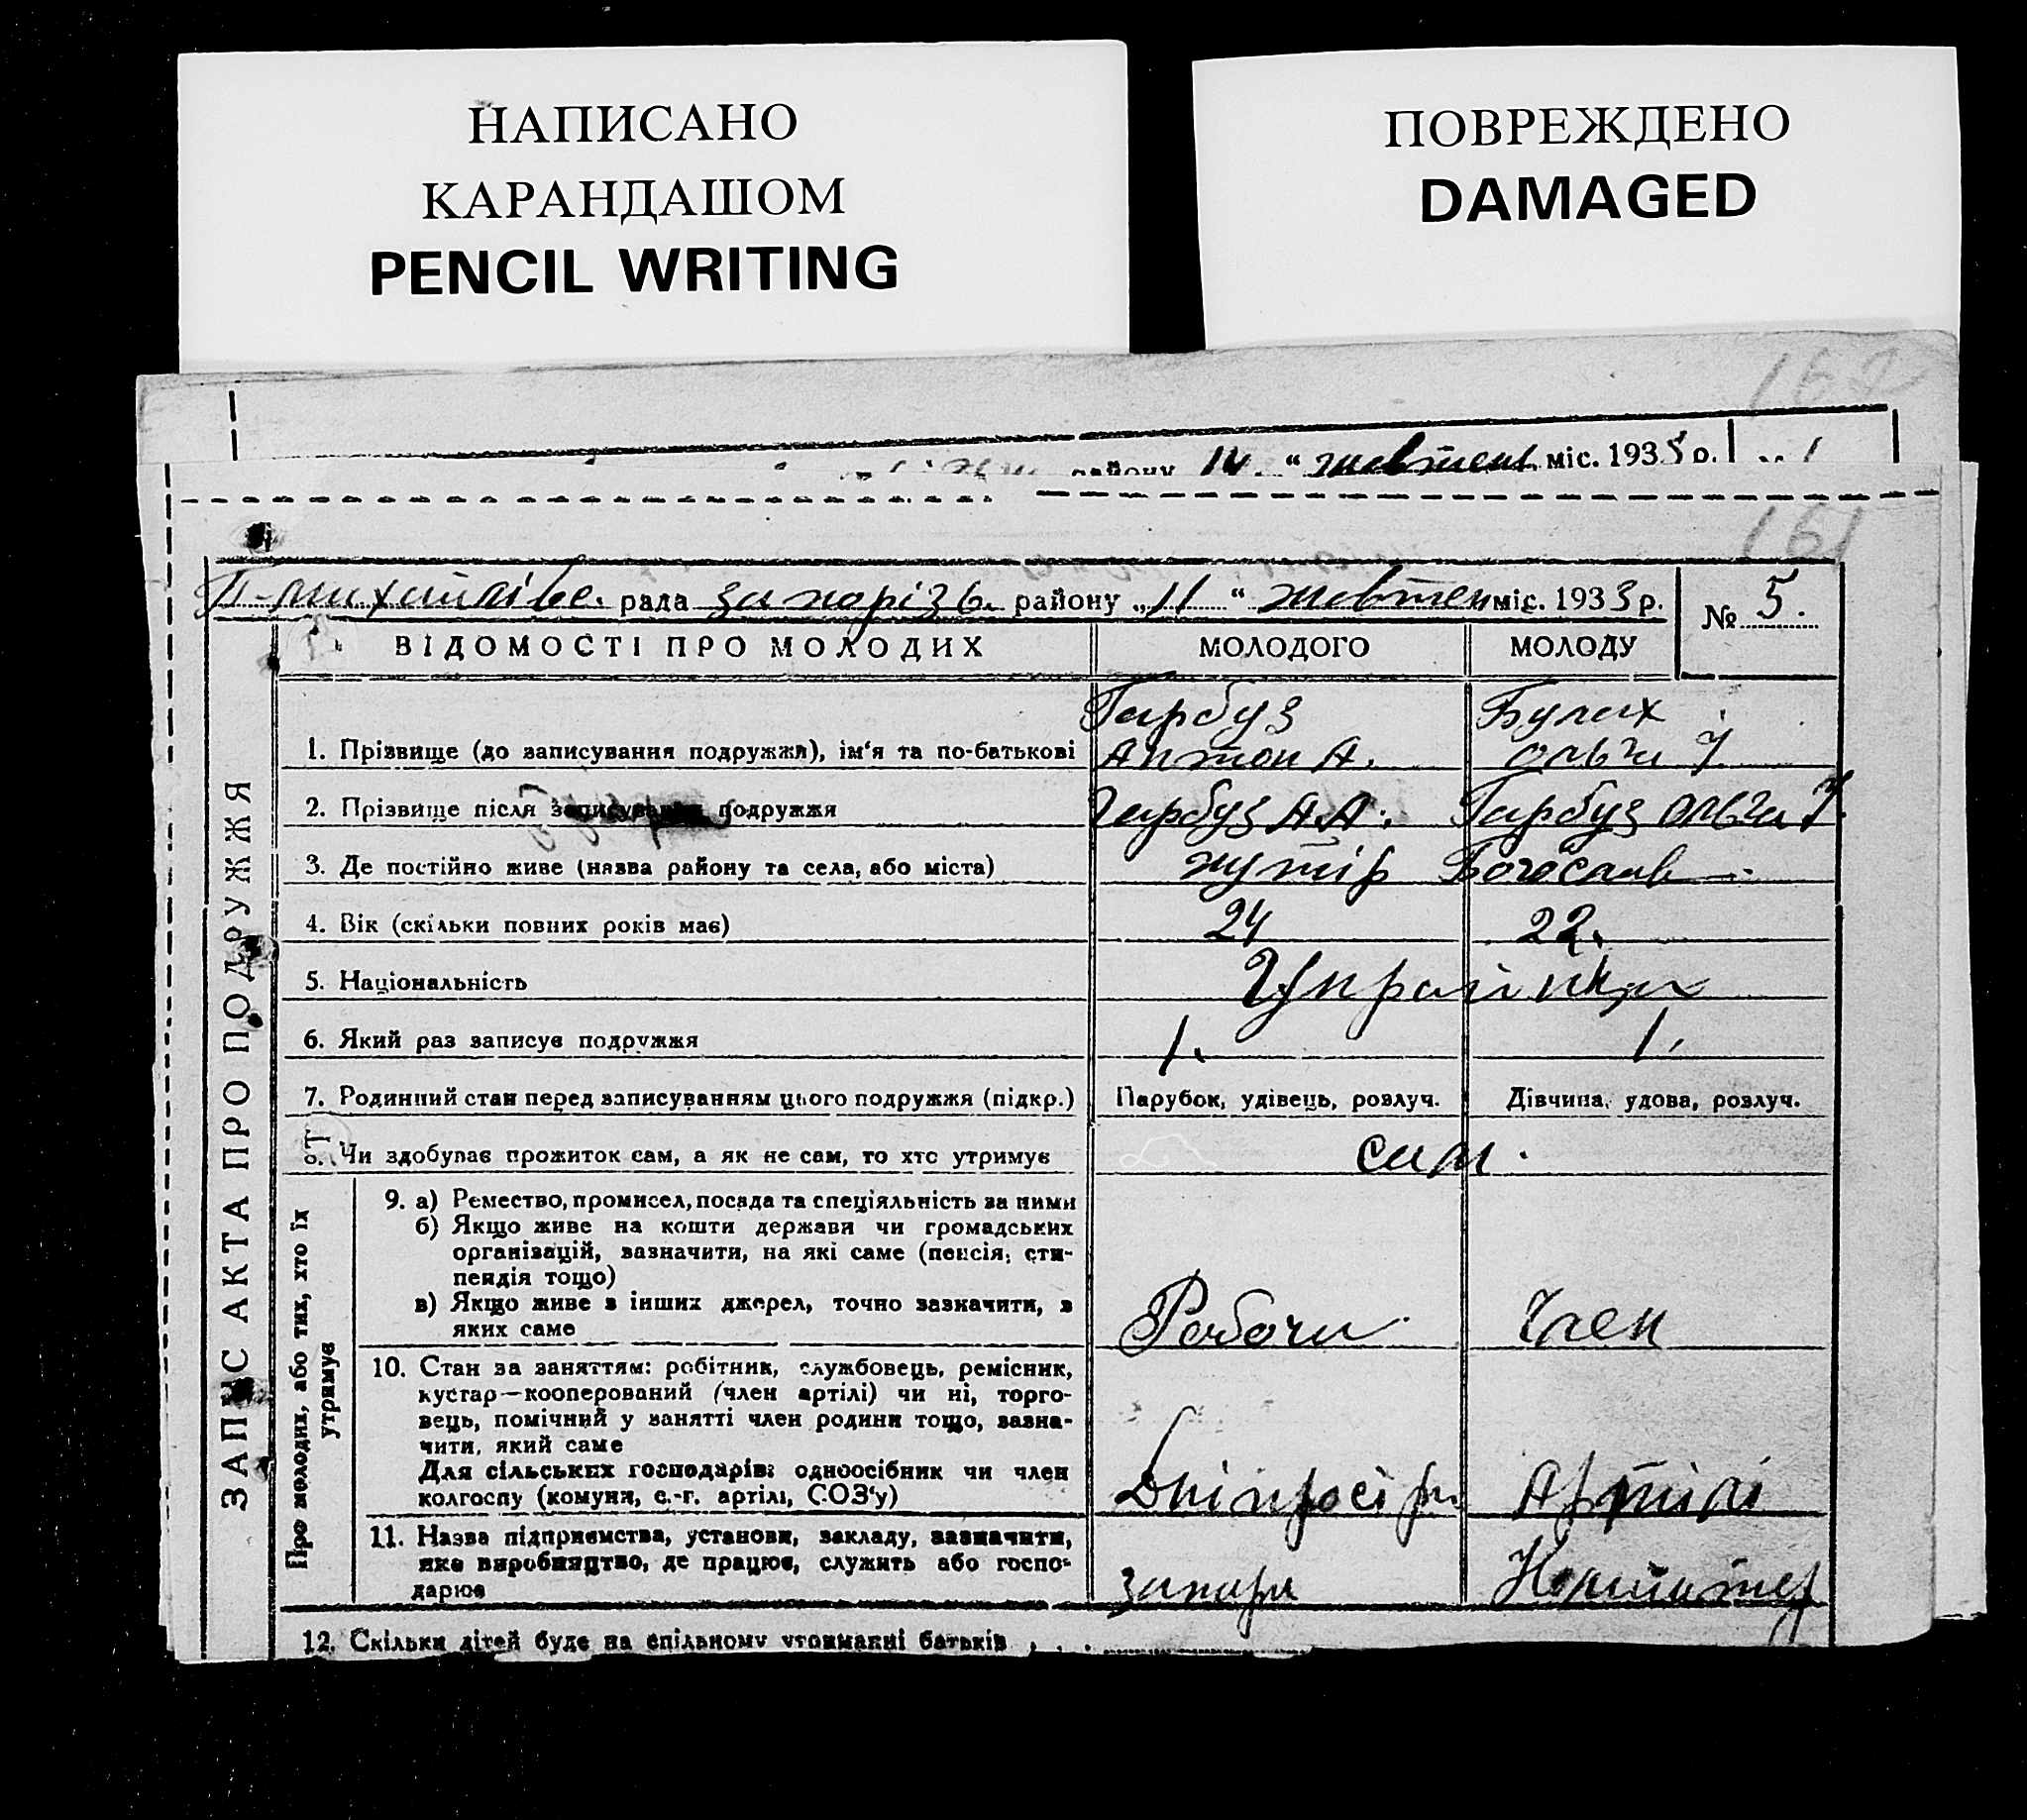 НАПИСАНО
КАРАНДАШОМ
PENCIL WRITING
ПОВРЕЖДЕНО
DAMAGED
162
району 14 “ жовтень міс. 1933 р.
161
П-михайлівс. рада запорізь. району „11“ жовтен міс. 1933 р.
№ 5.
ВІДОМОСТІ ПРО МОЛОДИХ МОЛОДОГО МОЛОДУ
Гарбуз Булах
1. Прізвище (до записування подружжя), ім'я та по-батькові Антон А. Ольга
2. Прізвище після записування подружжя Гарбуз А.А. Гарбуз Ольга
3. Де постійно живе (назва району та села, або міста) хутір Богослав
4. Вік (скільки повних років має) 24 22.
5. Національність Українці
6. Який раз записує подружжя 1. 1.
7. Родинний стан перед записуванням цього подружжя (підкр.) Парубок, удівець, розлуч. Дівчина, удова, розлуч.
8. Чи здобував прожиток сам, а як не сам, то хто утримує сам.
9. а) Ремество, промисел, посада та спеціяльність за ними
б) Якщо живе на кошти держави чи громадських
організацій, зазначити, на які саме (пенсія, сти-
пендія тощо)
в) Якщо живе з інших джерел, точно зазначити, з
яких саме Робочи Член
10. Стан за заняттям: робітник, службовець, ремісник,
кустар—кооперований (член артілі) чи ні, торго-
вець, помічний у занятті член родини тощо, зазна-
чити, який саме
Для сільських господарів: одноосібник чи член
колгоспу (комуни, с.-г. артілі, СОЗ'у) Артілі
11. Назва підприємства, установи, закладу, зазначити,
яке виробництво, де працює, служить або госпо-
дарює
12. Скільки дітей буде на спільному утриманні батьків . . .
ЗАПИС АКТА ПРО ПОДРУЖЖЯ
Про молодих, або тих, хто їх
утримує